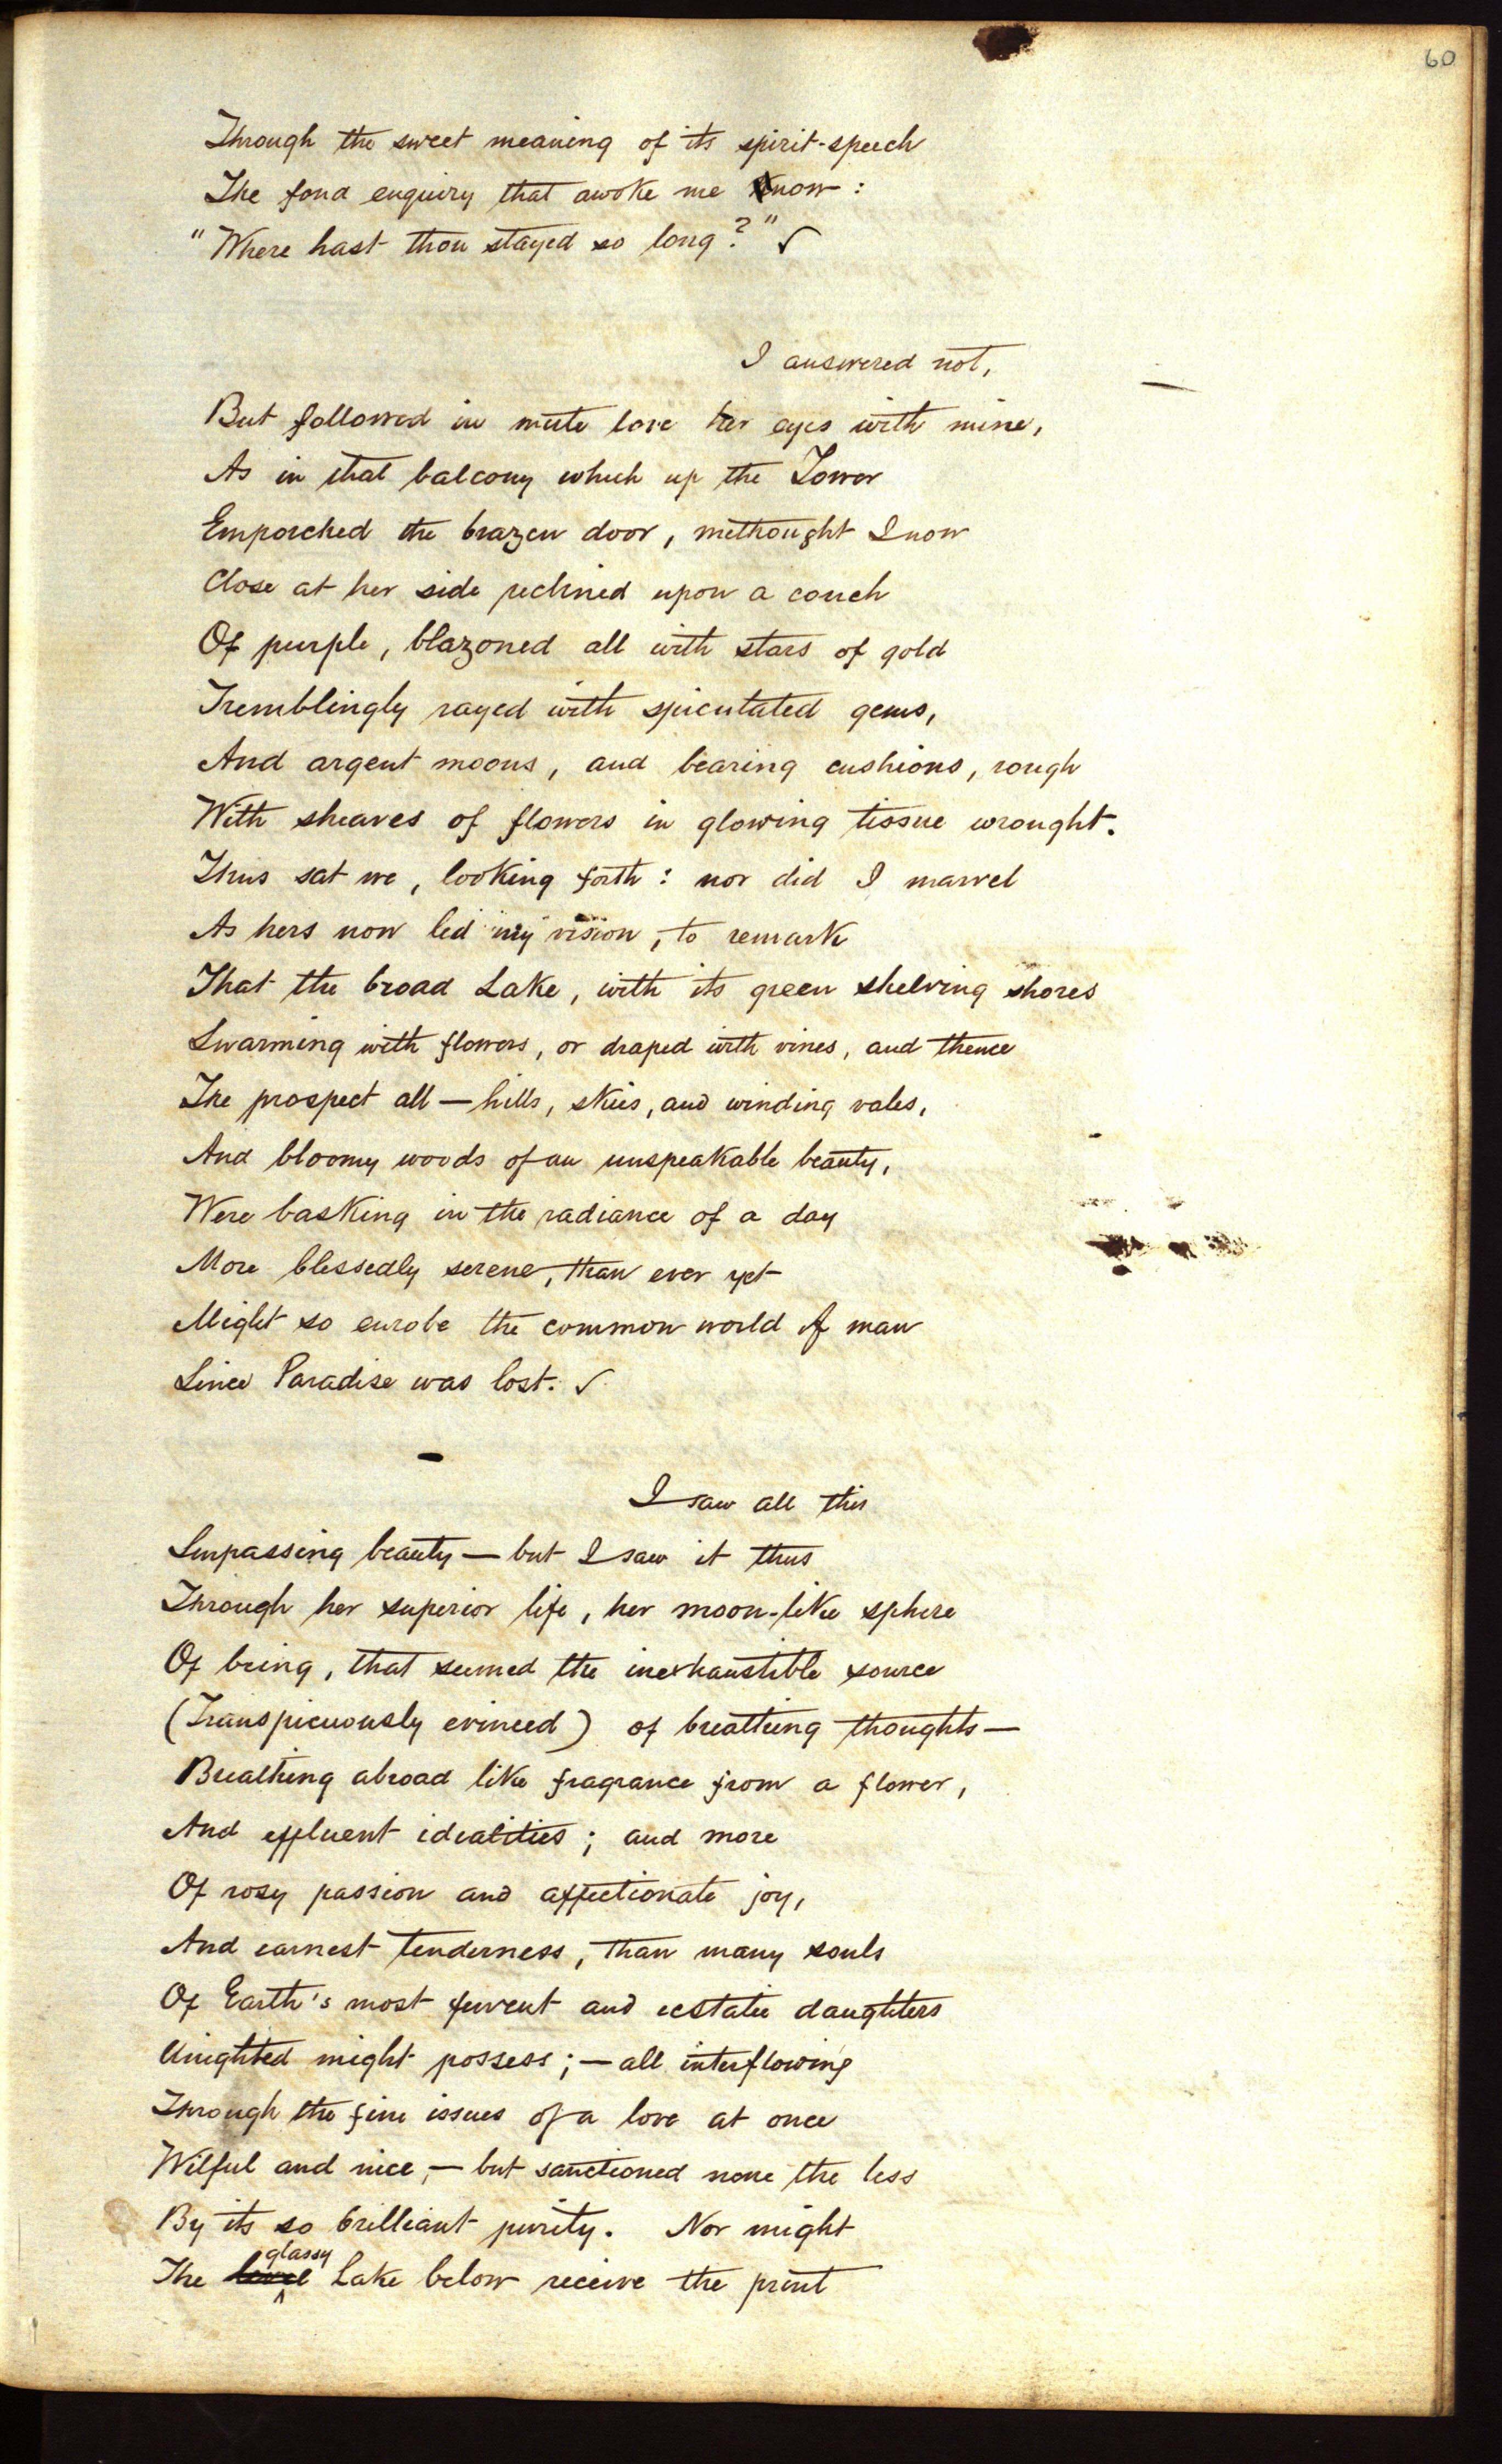 60
Through the sweet meaning of its spirit-speech
The fond enquiry that awoke me know:
"Where hast thou stayed so long?" ✓
I answered not,
But followed in mute love her eyes with mine,
As in that balcony which up the Tower
Emporched the brazen door, methought I now
Close at her side reclined upon a couch
Of purple, blazoned all with stars of gold
Tremblingly rayed with spiculated gems,
And argent moons, and bearing cushions, rough
With sheaves of flowers in glowing tissue wrought.
Thus sat we, looking forth: nor did I marvel
As hers now led my vision, to remark
That the broad Lake, with its green shelving shores
Swarming with flowers, or draped with vines, and thence
The prospect all — hills, skies, and winding vales,
And bloomy woods of an unspeakable beauty,
Were basking in the radiance of a day
More blessedly serene, than ever yet
Might so enrobe the common world of man
Since Paradise was lost. ✓
I saw all this
Surpassing beauty — but I saw it thus
Through her superior life, her moon-like sphere
Of being, that seemed the inexhaustible source
(Transpicuously evinced) of breathing thoughts —
Breathing abroad like fragrance from a flower,
And effluent idealities; and more
Of rosy passion and affectionate joy,
And earnest tenderness, than many souls
Of Earth's most fervent and ecstatic daughters
Unighted might possess; — all interflowing
Through the fine issues of a love at once
Wilful and nice, — but sanctioned none the less
By its so brilliant purity. Nor might
glassy
The level Lake below receive the print